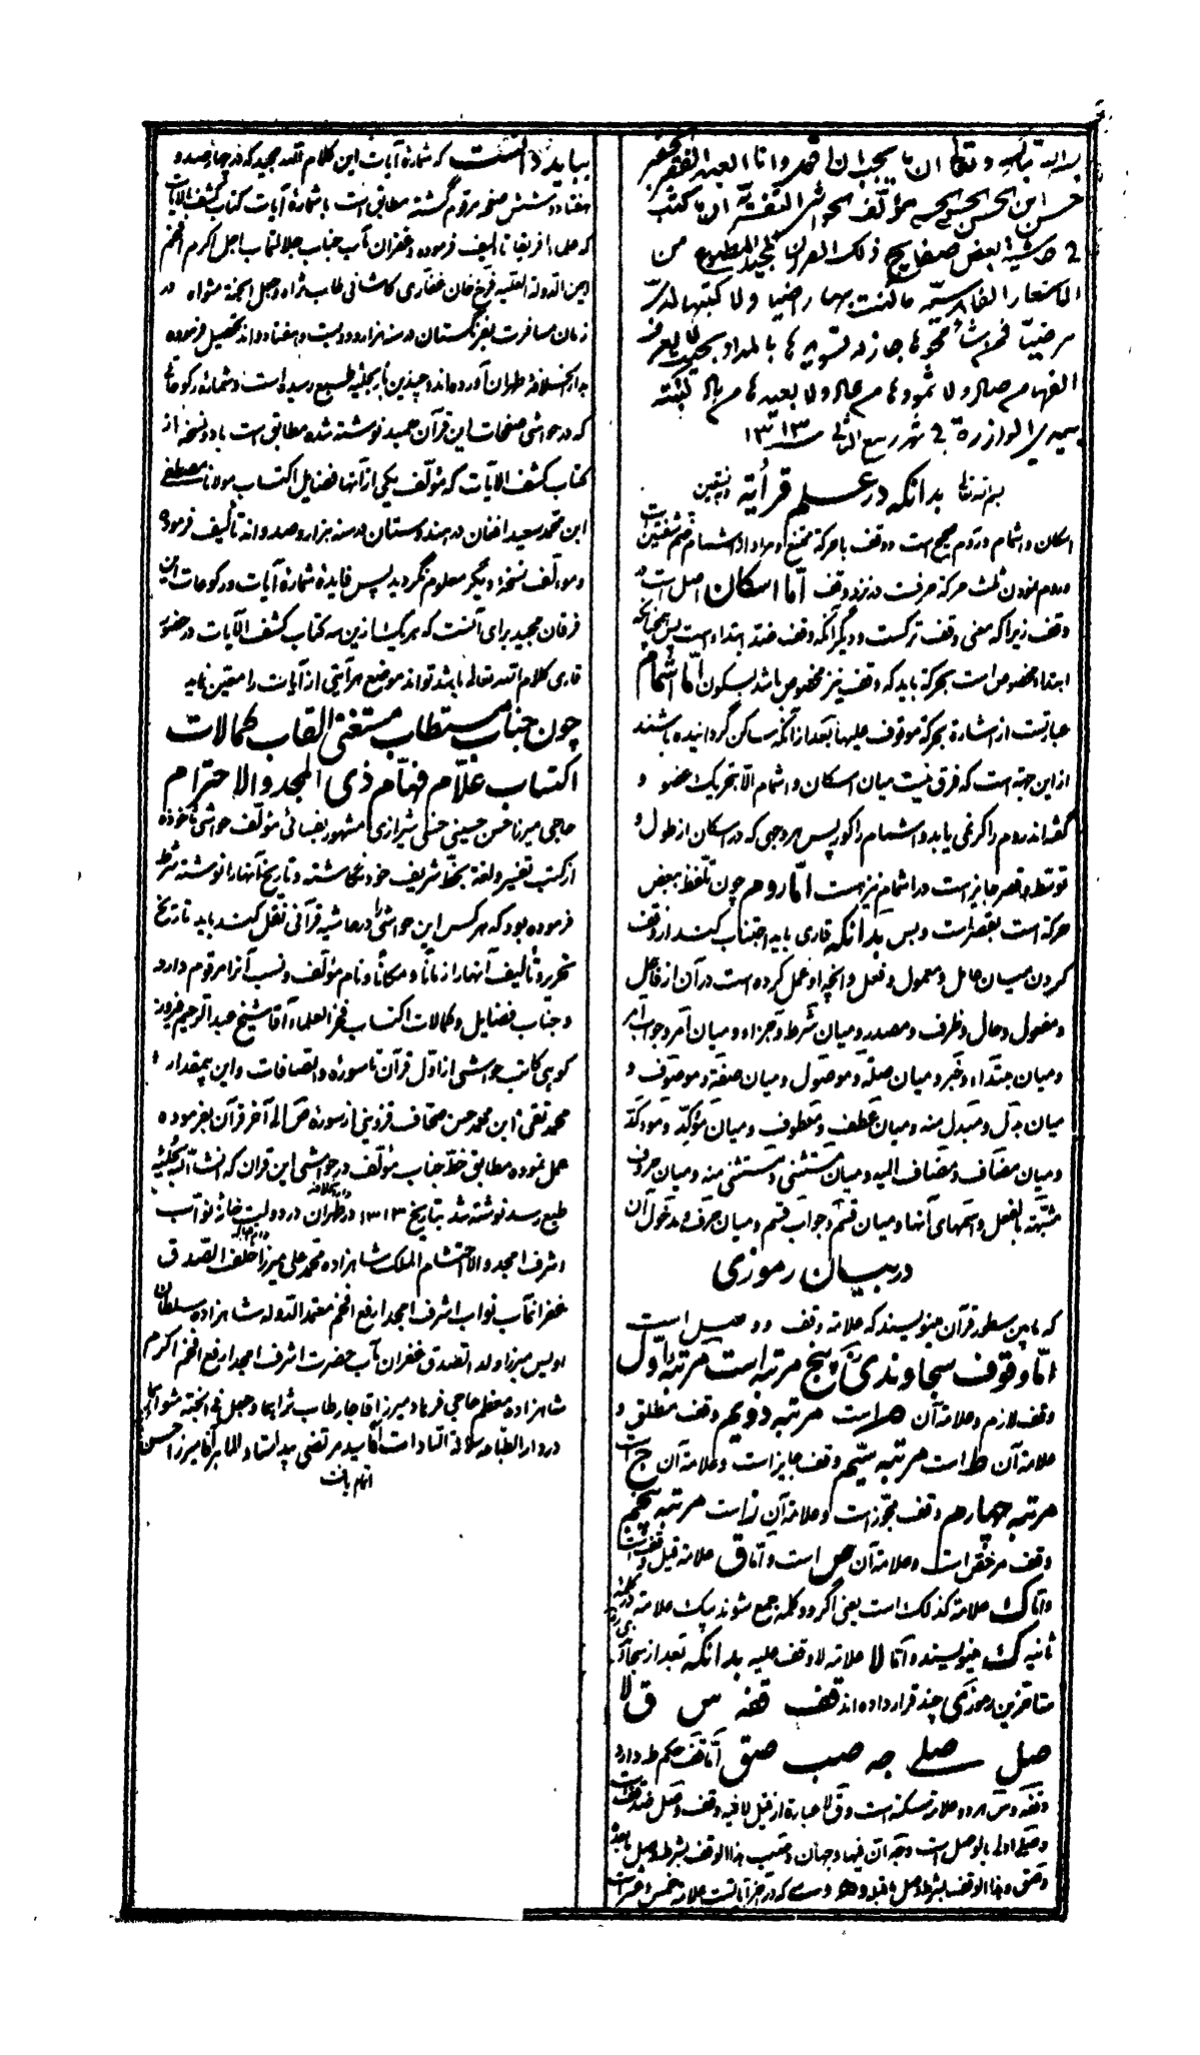 حسن ابن الحسن الحسینی مؤلف الحواشی التفسیریة
حاشیة بعض صفایح ذلک القرآن المجید المطبوع من
الاشعار الفارسیة ما کنت بها رضیا ولا کتبتها
شهر ربیع الثانی ۱۳۱۳
بدانکه در علم قرائة
اسکان و اشمام و روم صحیح است و وقف با حرکة ممتنع و مراد از اشمام ضم شفتین است
و روم نمودن ثلث حرکة حرفست در نزد وقف اما اسکان اصل است در
وقف زیرا که معنی وقف ترکست و دیگر آنکه وقف ضد ابتداء است پس همچنانکه
ابتداء مخصوص است بحرکة باید که وقف نیز مخصوص باشد بسکون اما اشمام
عبارتست از اشارة بحرکة موقوف علیها بعد از آنکه ساکن گردانیده باشند
از این جهة است که فرق نیست میان اسکان و اشمام الا بتحریک عضو و
گفته‌اند روم را کر نمی یابد و اشمام را کور پس هر وجهی که در اسکان از طول و
توسط و قصر جایز است در اشمام نیز هست اما روم چون تلفظ ببعض
حرکة است بقصر است و بس بدانکه قاری باید اجتناب کند از وقف
کردن میان عامل و معمول و فعل و آنچه او عمل کرده است در آن از فاعل
و مفعول و حال و ظرف و مصدر و میان شرط و جزاء و میان امر و جواب امر
و میان مبتداء و خبر و میان صله و موصول و میان صفة و موصوف و
میان بدل و مبدل منه و میان عطف و معطوف و میان مؤکد و موکد
و میان مضاف و مضاف الیه و میان مستثنی و مستثنی منه و میان حروف
مشبهة بالفعل و اسمهای آنها و میان قسم و جواب قسم و میان حرف و مدخول آن
در بیان رموزی
که مابین سطور قرآن مینویسند که علامة وقف و وصل است
اما وقوف سجاوندی پنج مرتبه است مرتبه اول
وقف لازم و علامة آن م است مرتبه دویم وقف مطلق و
علامة آن ط است مرتبه سیم وقف جایز است و علامة آن ج است
مرتبه چهارم وقف مجوز است و علامة آن ز است مرتبه پنجم
وقف مرخص است و علامة آن ص است و اما ق علامة قیل وقف است
و اما ک علامة کذلک است یعنی اگر دو کلمه جمع شوند بیک علامة در کلمه
ثانیه ک مینویسند و اما لا علامة لا وقف علیه بدانکه بعد از سجاوندی
متاخرین رموزی چند قرار داده‌اند قف قفه س ق لا
صل صلی جه صب صق اما قف حکم ط دارد
وقفه و س هر دو علامة سکته است و ق لا عبارة از قیل لا فیه وقف و صل ضد قف است
و صلی اولی بالوصل است و جه ان فیها وجهان و صب هذا الوقف بشرط وصل بعد
و صق هذا الوقف بشرط وصل ماقبل
بباید دانست که شماره آیات این کلام الله مجید که در چهارصد و
هفتاد و شش صفحه مرقوم گشته مطابق است با شماره آیات کتاب کشف الآیات
که علماء افریقا تالیف فرموده و غفران مآب جناب جلالتمآب اجل اکرم افخم
امین الدولة العلیه فرخ خان غفاری کاشانی طاب ثراه و جعل الجنة مثواه در
زمان مسافرت بفرنگستان در سنه هزار و دویست و هفتاد و اند تحصیل فرموده
بدارالخلافه طهران آورده‌اند و چندین بار بحلیه طبع رسیده است و شماره رکوعات
که در حواشی صفحات این قرآن حمید نوشته شده مطابق است با دو نسخه از
کتاب کشف الآیات که مؤلف یکی از آنها فضایل اکتساب مولانا مصطفی
ابن محمد سعید افغان در هندوستان در سنه هزار و صد و اند تالیف فرموده
و مؤلف نسخه دیگر معلوم نگردید پس فایده شماره آیات و رکوعات این
فرقان مجید برای آنست که هر یک از این سه کتاب کشف الآیات در حضور
قاری کلام الله تعالی باشد تواند موضع هر آیتی از آیات را معین نماید
چون جناب مستطاب مستغنی القاب کمالات
اکتساب علّام فهّام ذی المجد والاحترام
حاجی میرزا حسن حسینی حسنی شیرازی مشهور بفسائی مؤلف حواشی مأخوذه
از کتب تفسیر و لغة بخط شریف خود نگاشته و تاریخ آنها را نوشته شرط
فرموده بود که هر کس این حواشی را در حاشیه قرآنی نقل کند باید تاریخ
تحریر و تألیف آنها را زمانا و مکانا و نام مؤلف و نسب آنرا مرقوم دارد
و جناب فضایل و کمالات اکتساب فخر العلماء آقا شیخ عبدالرحیم
کاتب حواشی از اول قرآن تا سوره والصافات و این بیمقدار
محمد تقی ابن محمد حسن صحاف قزوینی از سوره ص الی آخر قرآن بفرموده
عمل نموده مطابق خط جناب مؤلف در حواشی این قران که انشاء الله بحلیه
طبع رسد نوشته شد بتاریخ ۱۳۱۳ در دارالخلافه طهران در دولت خانه نواب
اشرف امجد والا احتشام الملک شاهزاده محمد علی میرزا دام اقباله خلف الصدق
غفرانمآب نواب اشرف امجد ارفع افخم معتمد الدوله شاهزاده سلطان
اویس میرزا ولد الصدق غفران مآب حضرت اشرف امجد ارفع افخم اکرم
شاهزاده معظم حاجی فرهاد میرزا قاجار طاب ثراهما و جعل فی الجنة مثواهما
در دار الطباعه سلالة السادات آقا سید مرتضی بید استاد الماهر آقا میرزا حسن
اتمام یافت